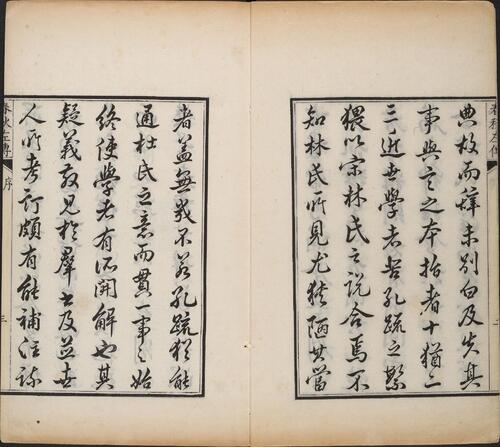 典故而罅未別白及失其
事與言之本指者十猶二
三逝吾學者苦孔疏之繁
猥以宗林氏之說合焉不
知林氏所見尤狹陋其當
者蓋無幾不若孔疏猶能
通杜氏之意而貫一事之始
終使學者有所開解也其
疑義散見於羣書及並世
人所考訂頗有能補注疏
春秋左傳
序
三